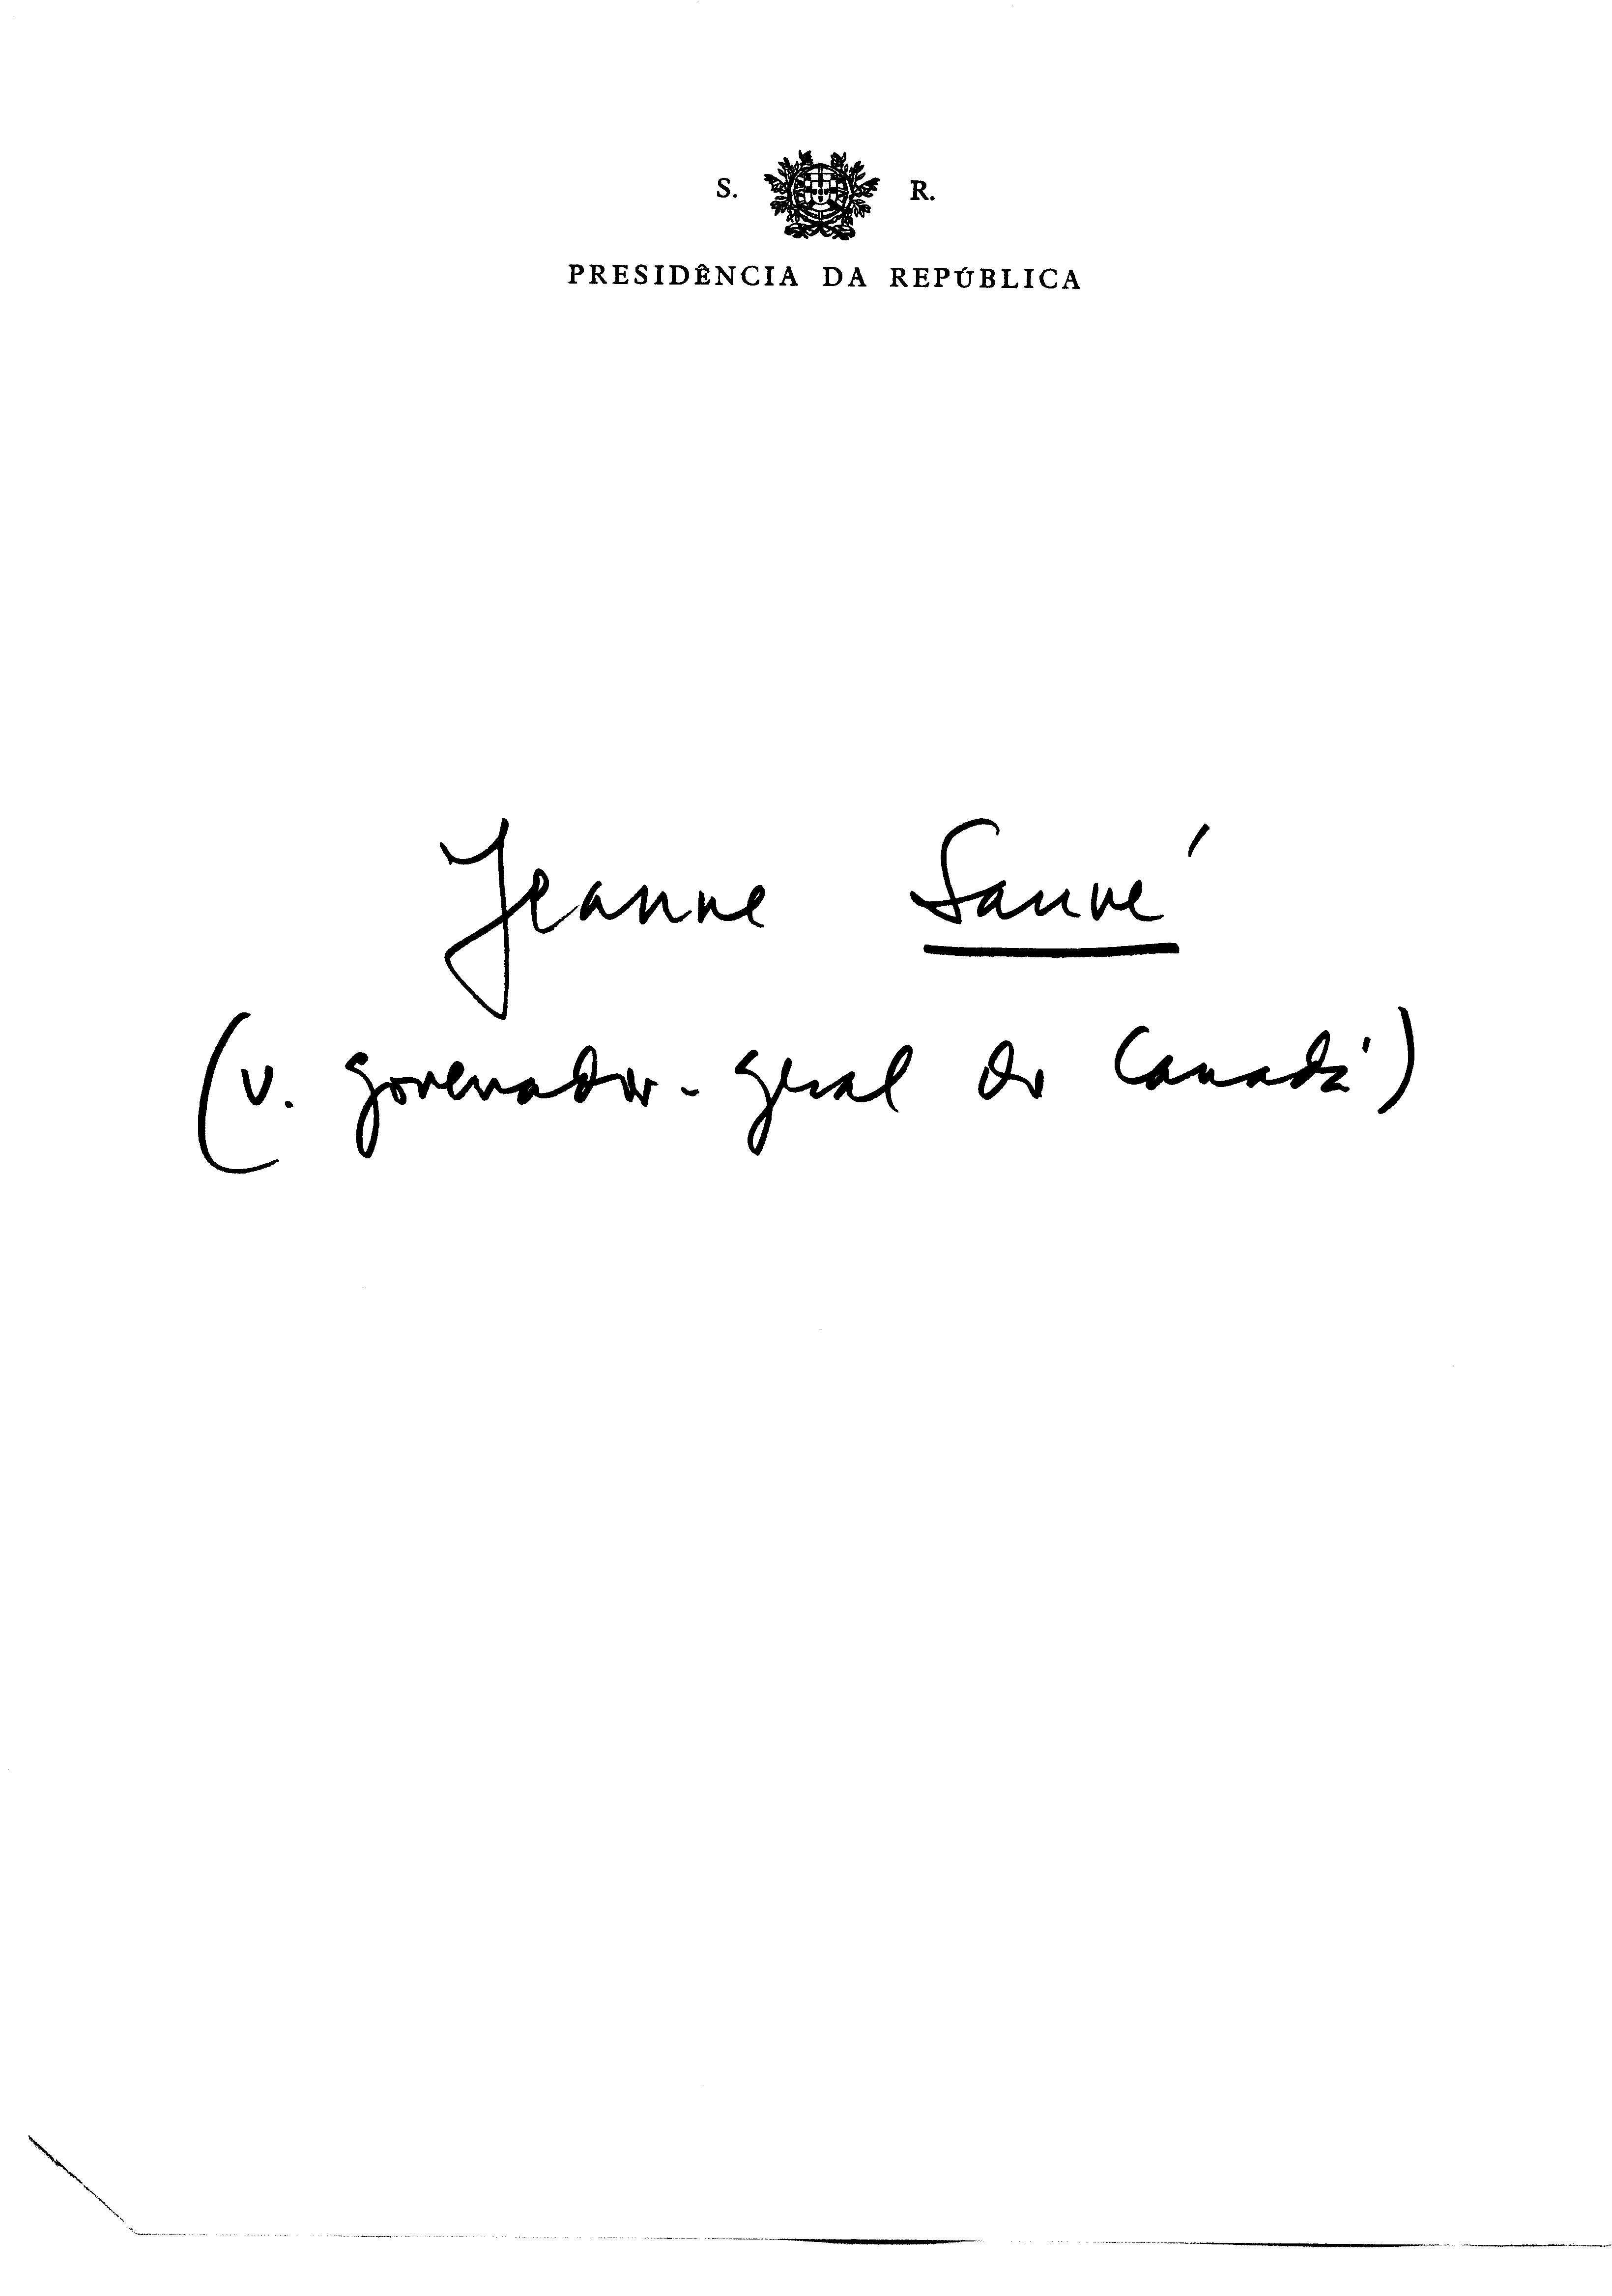 S. R.
PRESIDÊNCIA DA REPÚBLICA
Jeanne Sauvé
(v. governador-geral do Canadá)